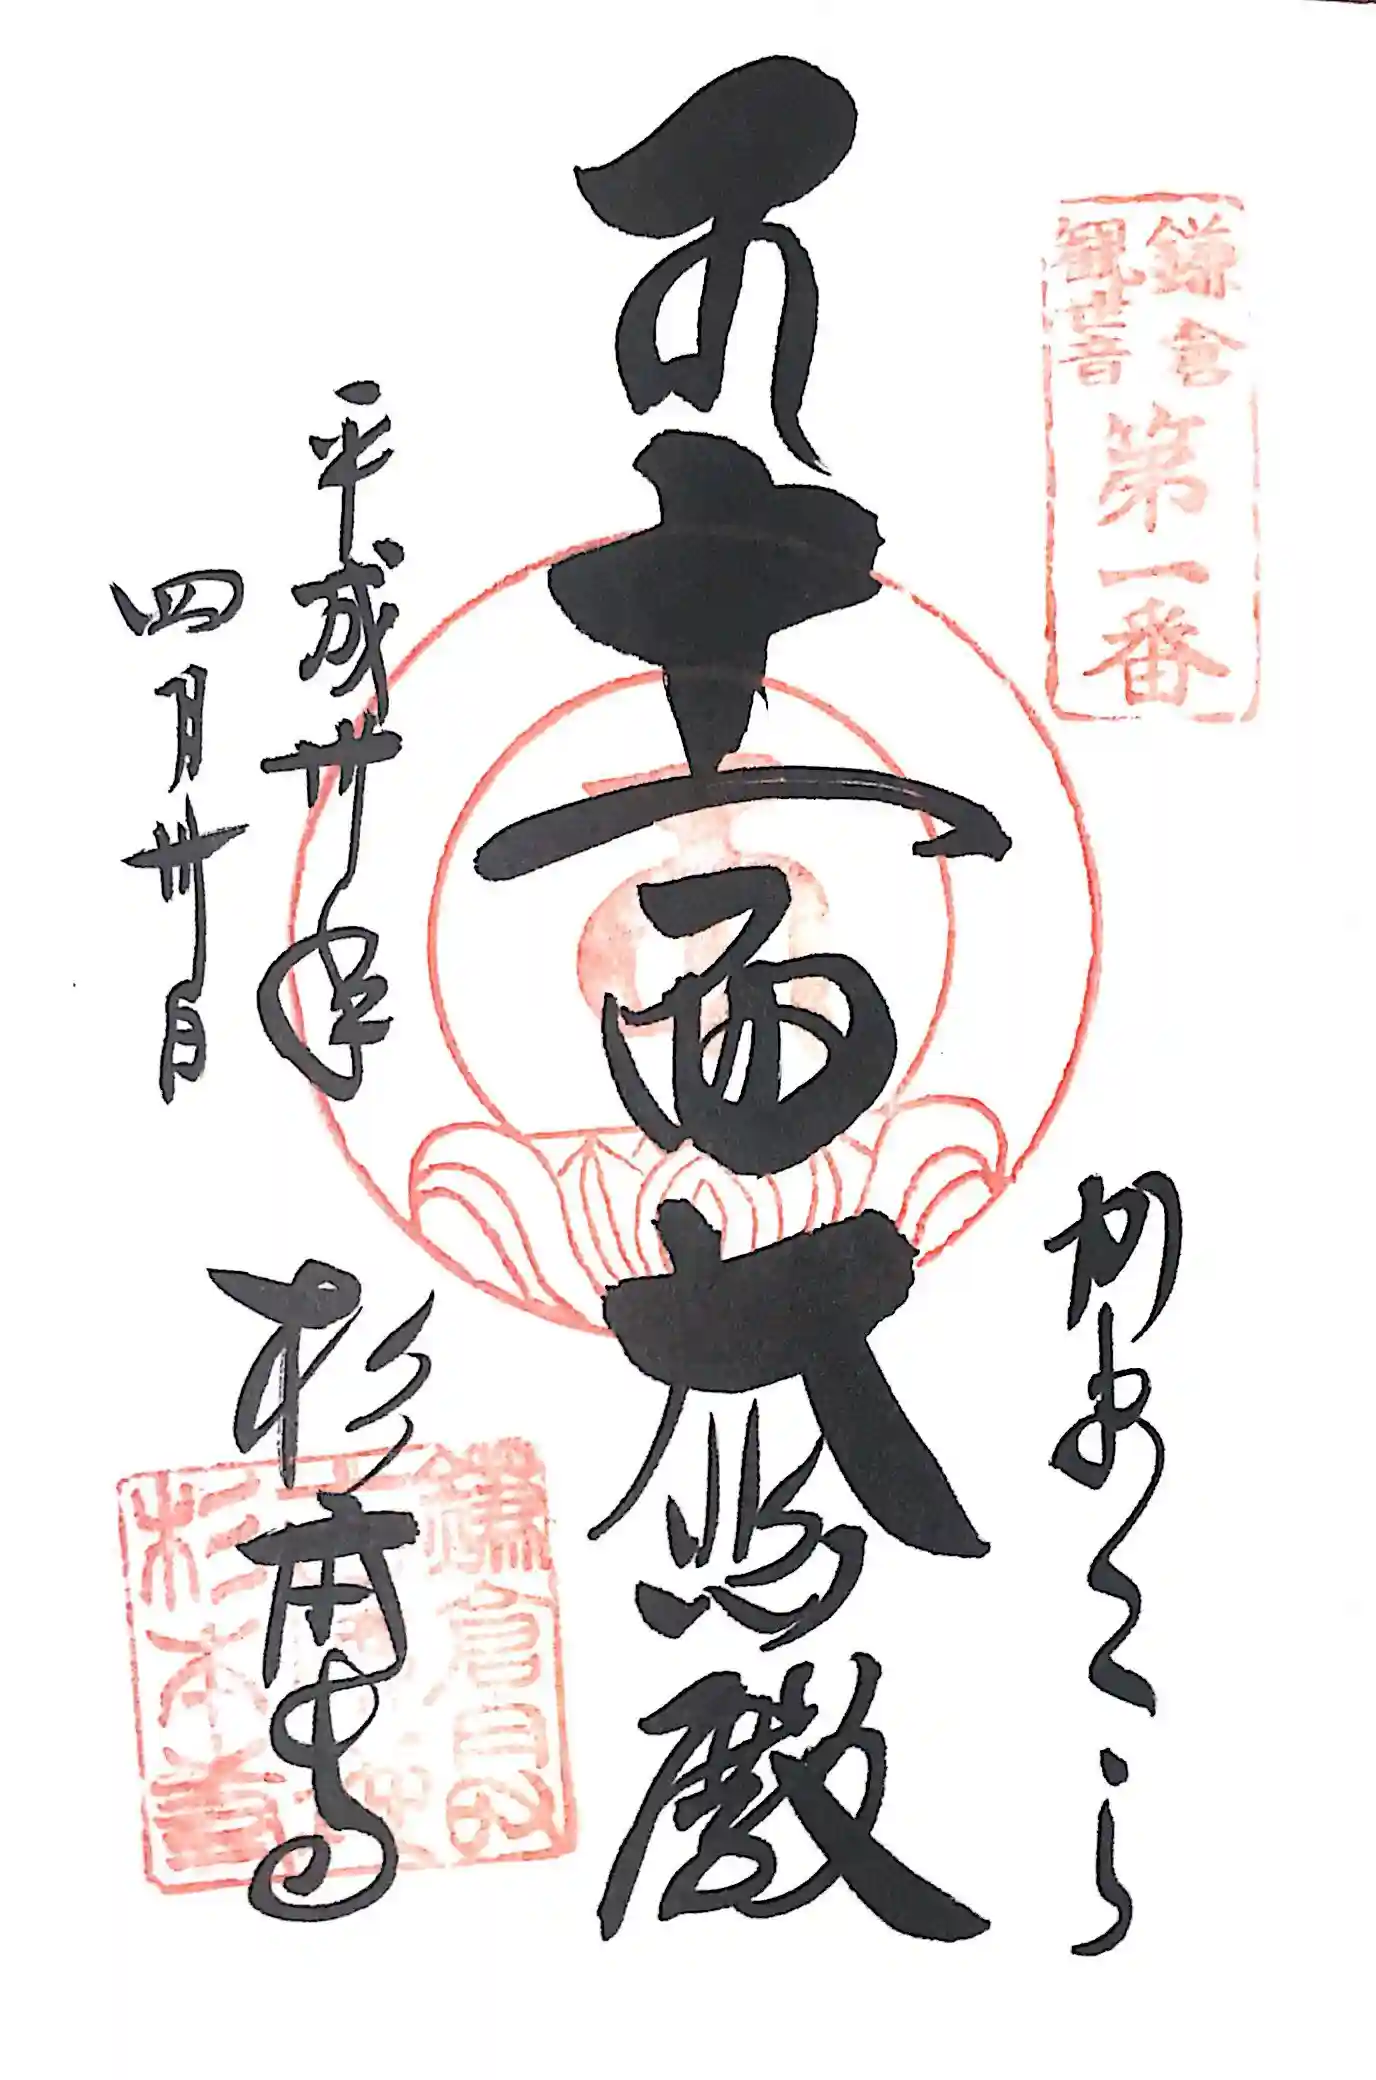 鎌倉
観世音
第一番
かまくら
十一面大悲殿
平成卅年
四月卅日
杉本寺
鎌倉
杉本寺